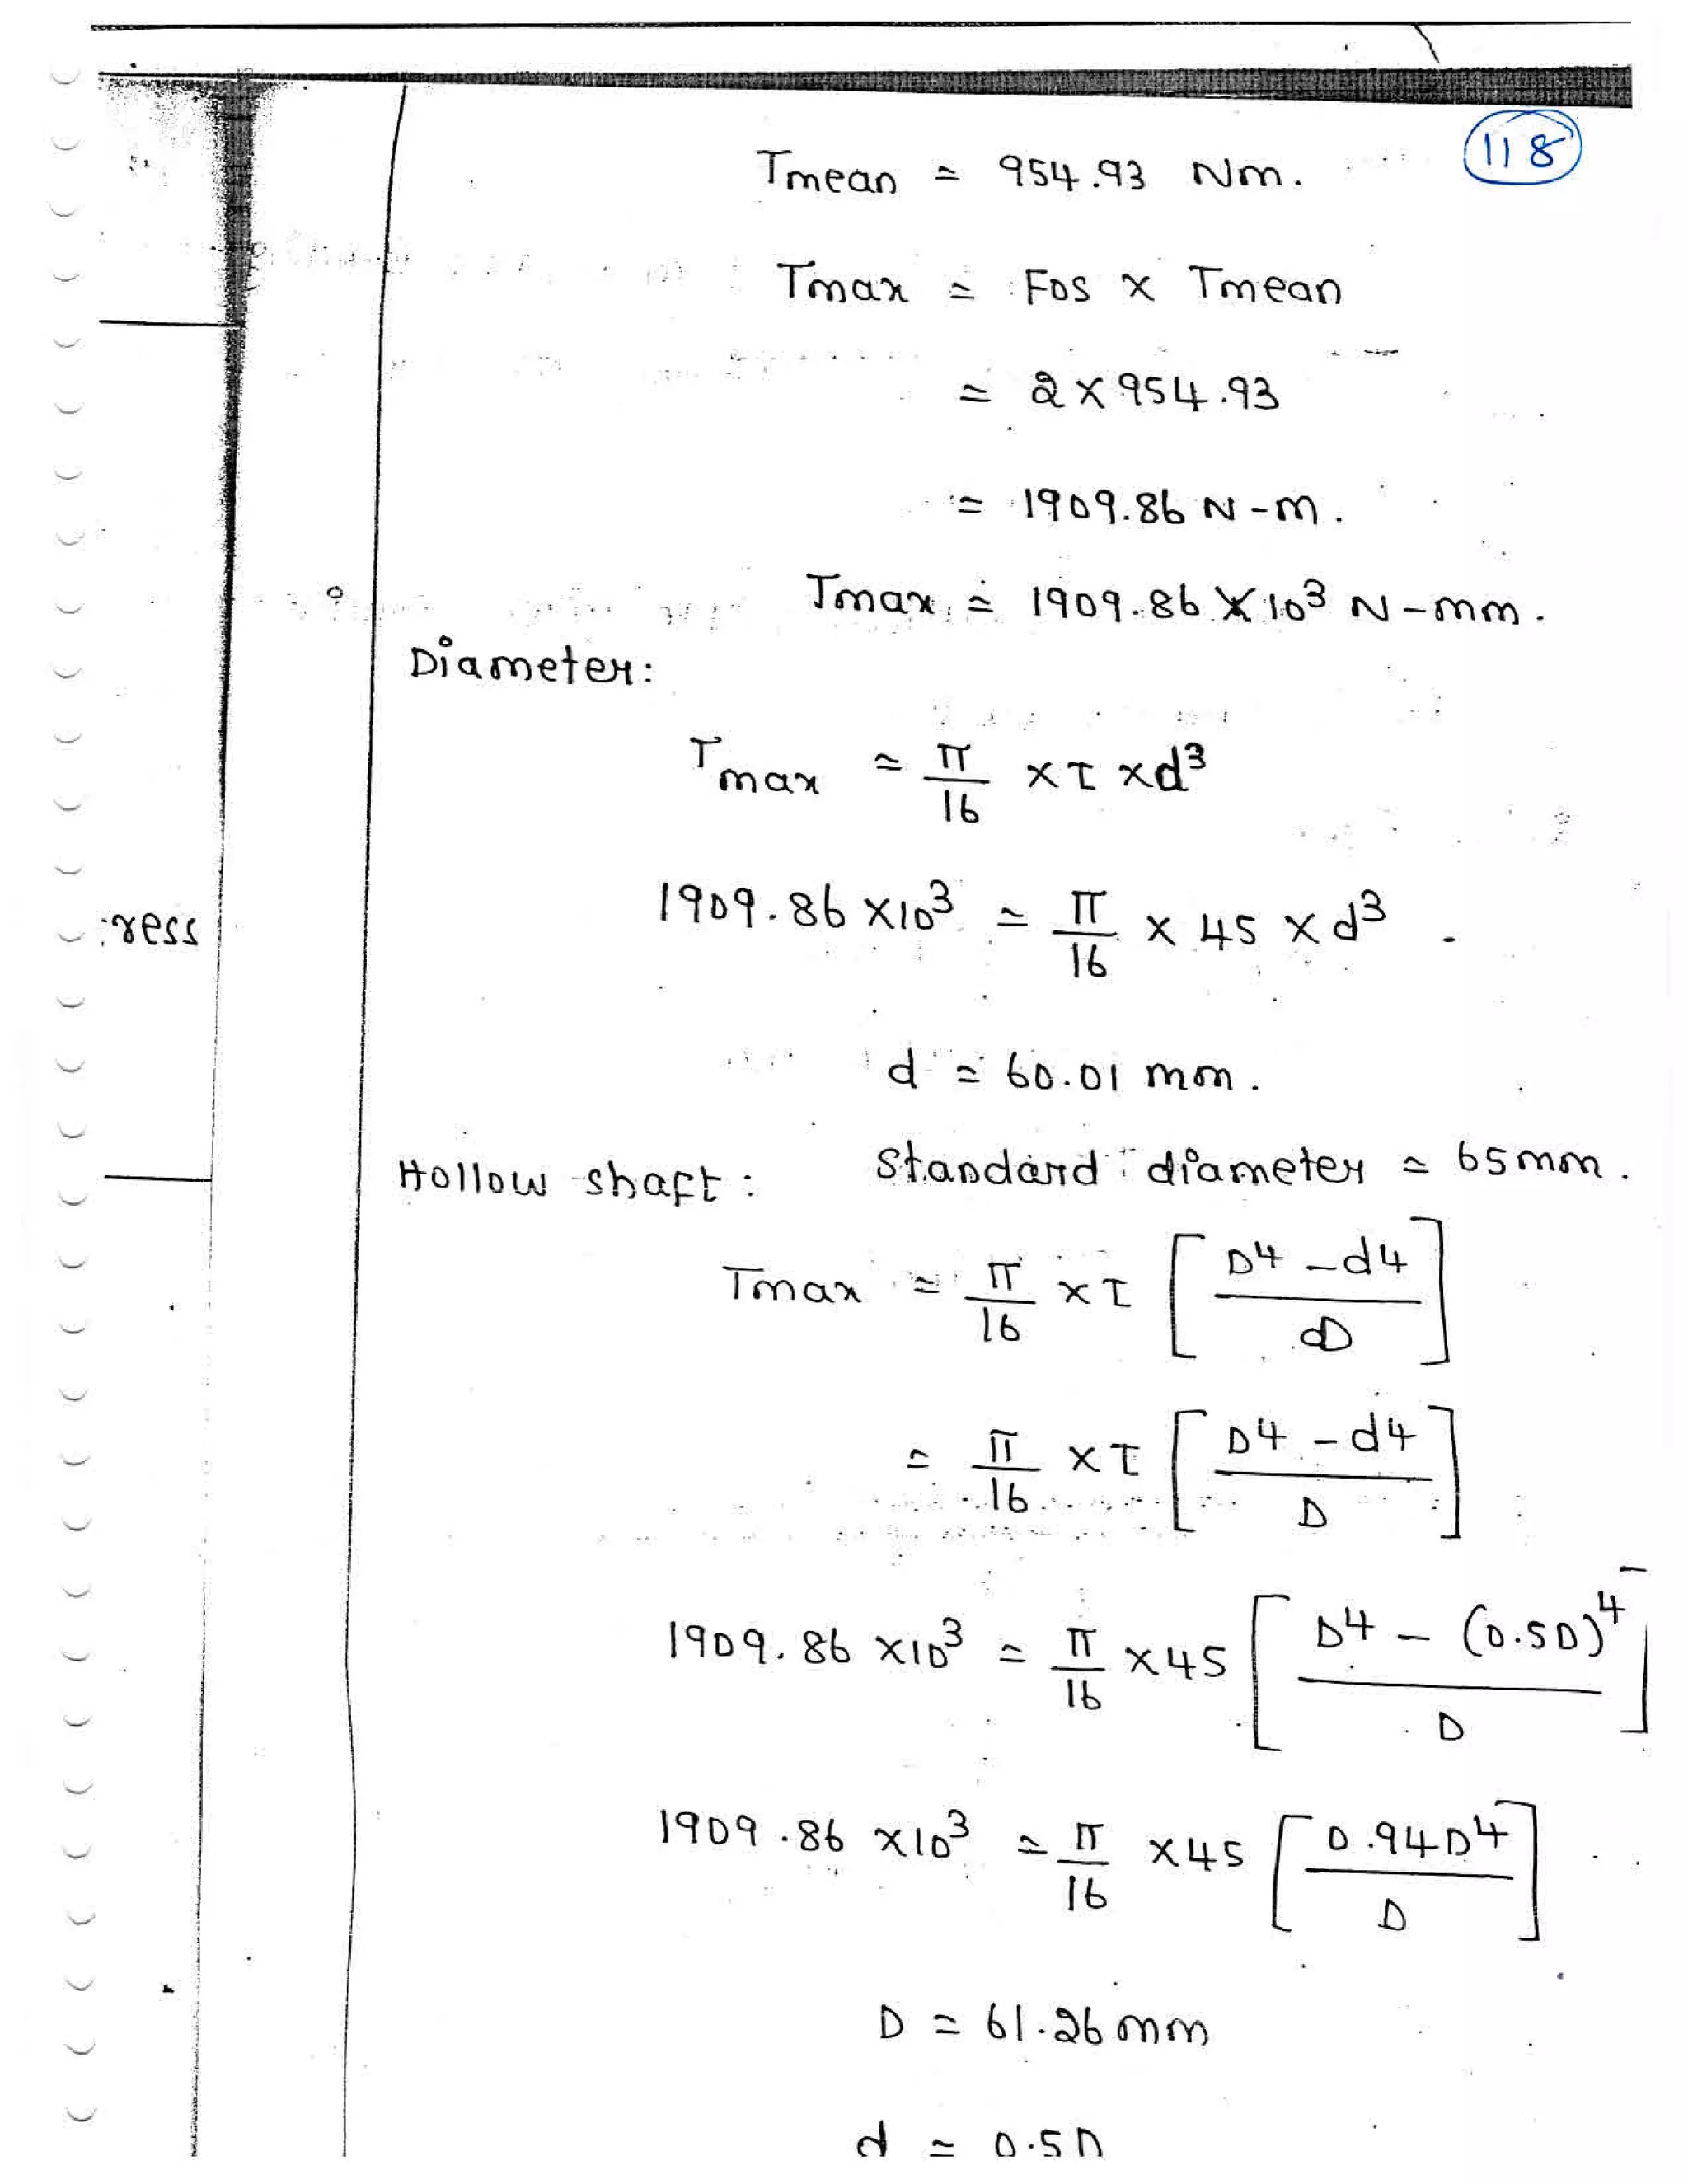 118
Tmean = 954.93 Nm.
Tmax = FOS × Tmean
= 2 × 954.93
= 1909.86 N-m.
Tmax = 1909.86 × 10³ N-mm.
Diameter:
Tmax = π/16 × τ × d³
1909.86 × 10³ = π/16 × 45 × d³
:ress
d = 60.01 mm.
Standard diameter = 65mm.
Hollow shaft:
Tmax = π/16 × τ [D4 - d4 / D]
= π/16 × τ [D4 - d4 / D]
1909.86 × 10³ = π/16 × 45 [D4 - (0.5D)⁴ / D]
1909.86 × 10³ = π/16 × 45 [0.94D4 / D]
D = 61.26 mm
d = 0.5D